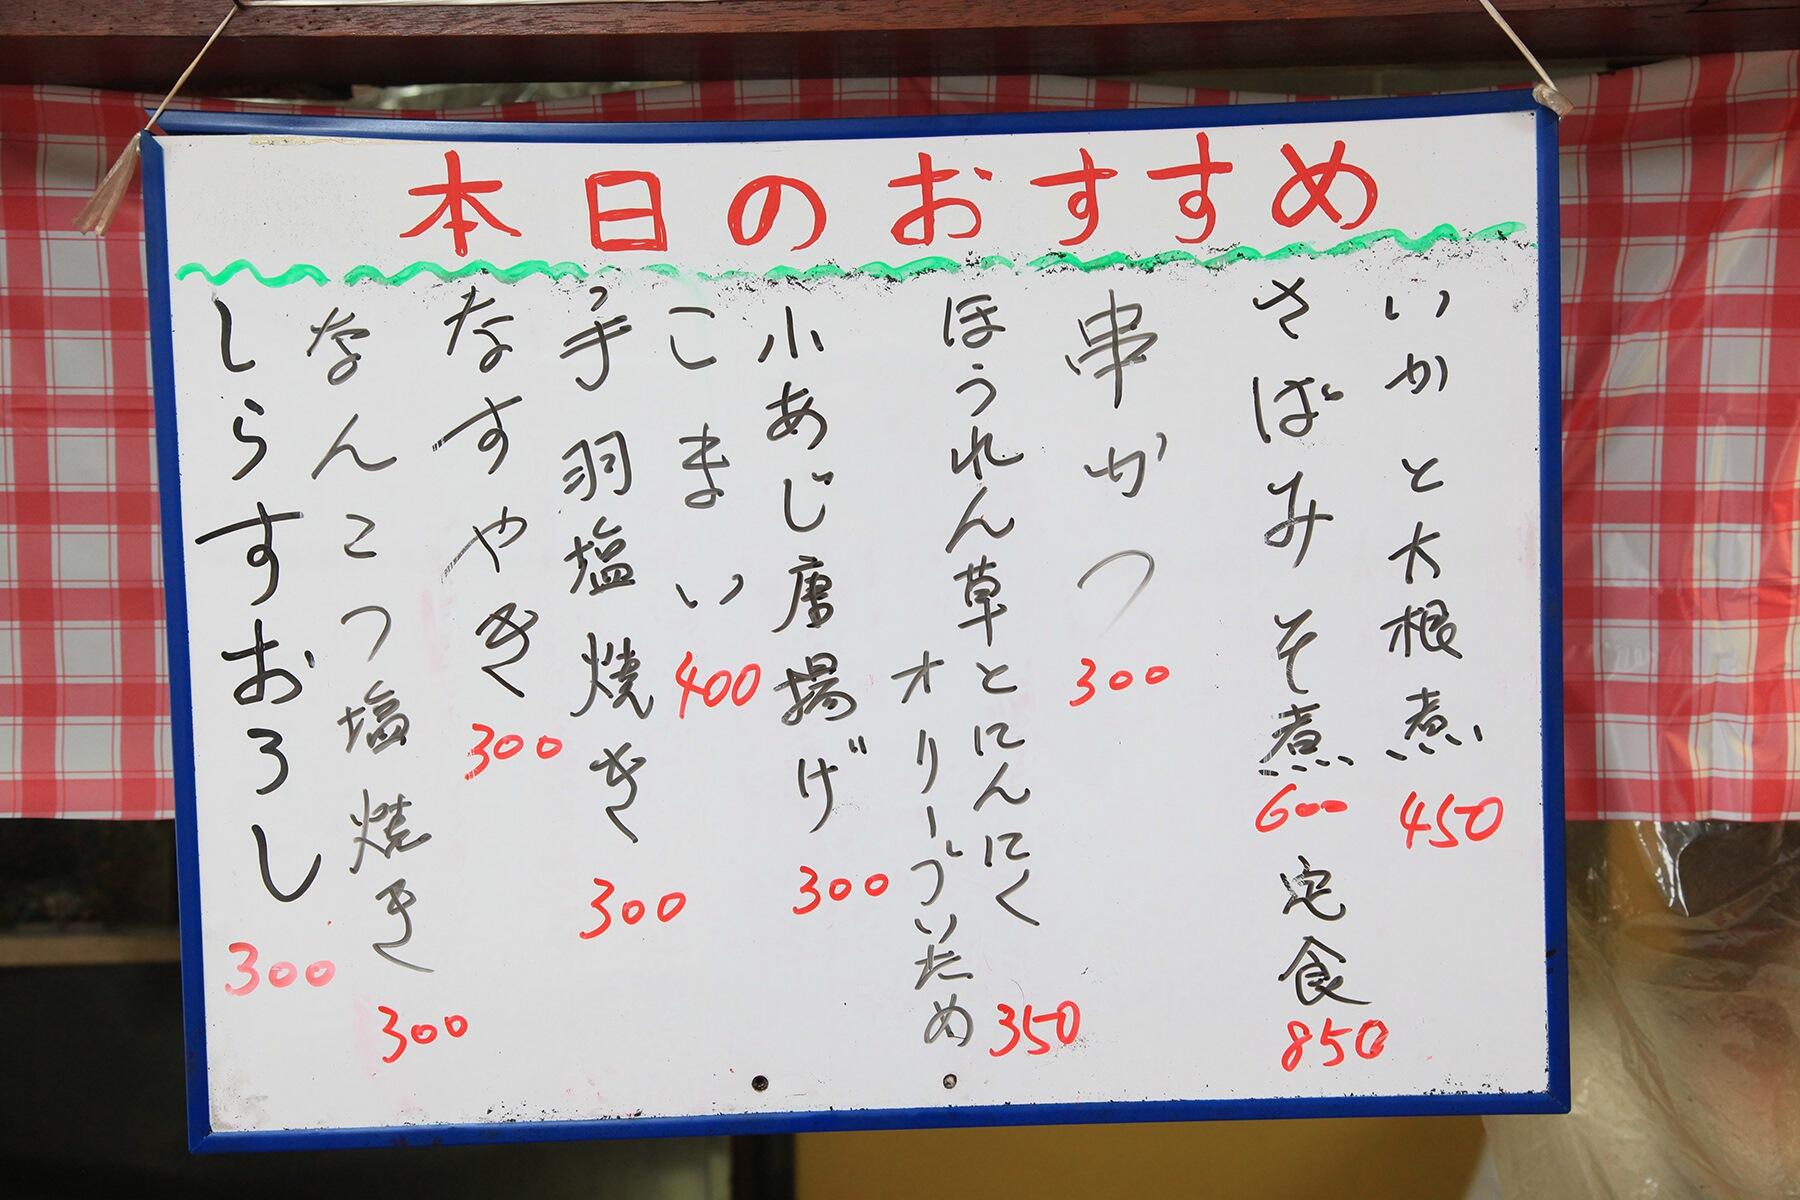 本日のおすすめ
いかと大根煮 450
さばみそ煮 600 定食 850
串かつ 300
ほうれん草とにんにく
オリーブいため 350
小あじ唐揚げ 300
こまい 400
手羽塩焼き 300
なすやき 300
なんこつ塩焼き 300
しらすおろし 300